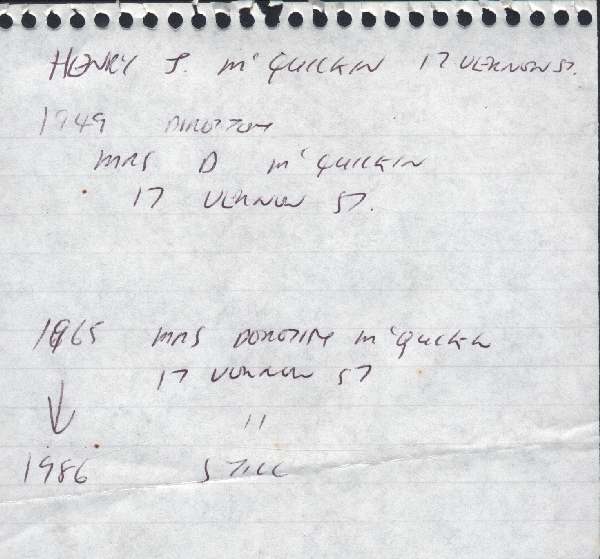 HENRY J. Mc QUILKIN 17 VERNON ST.
1949 DIRECTORY
MRS D Mc QUILKIN
17 VERNON ST.
1965 MRS DOROTHY McQUILKIN
17 VERNON ST
"
1986 STILL